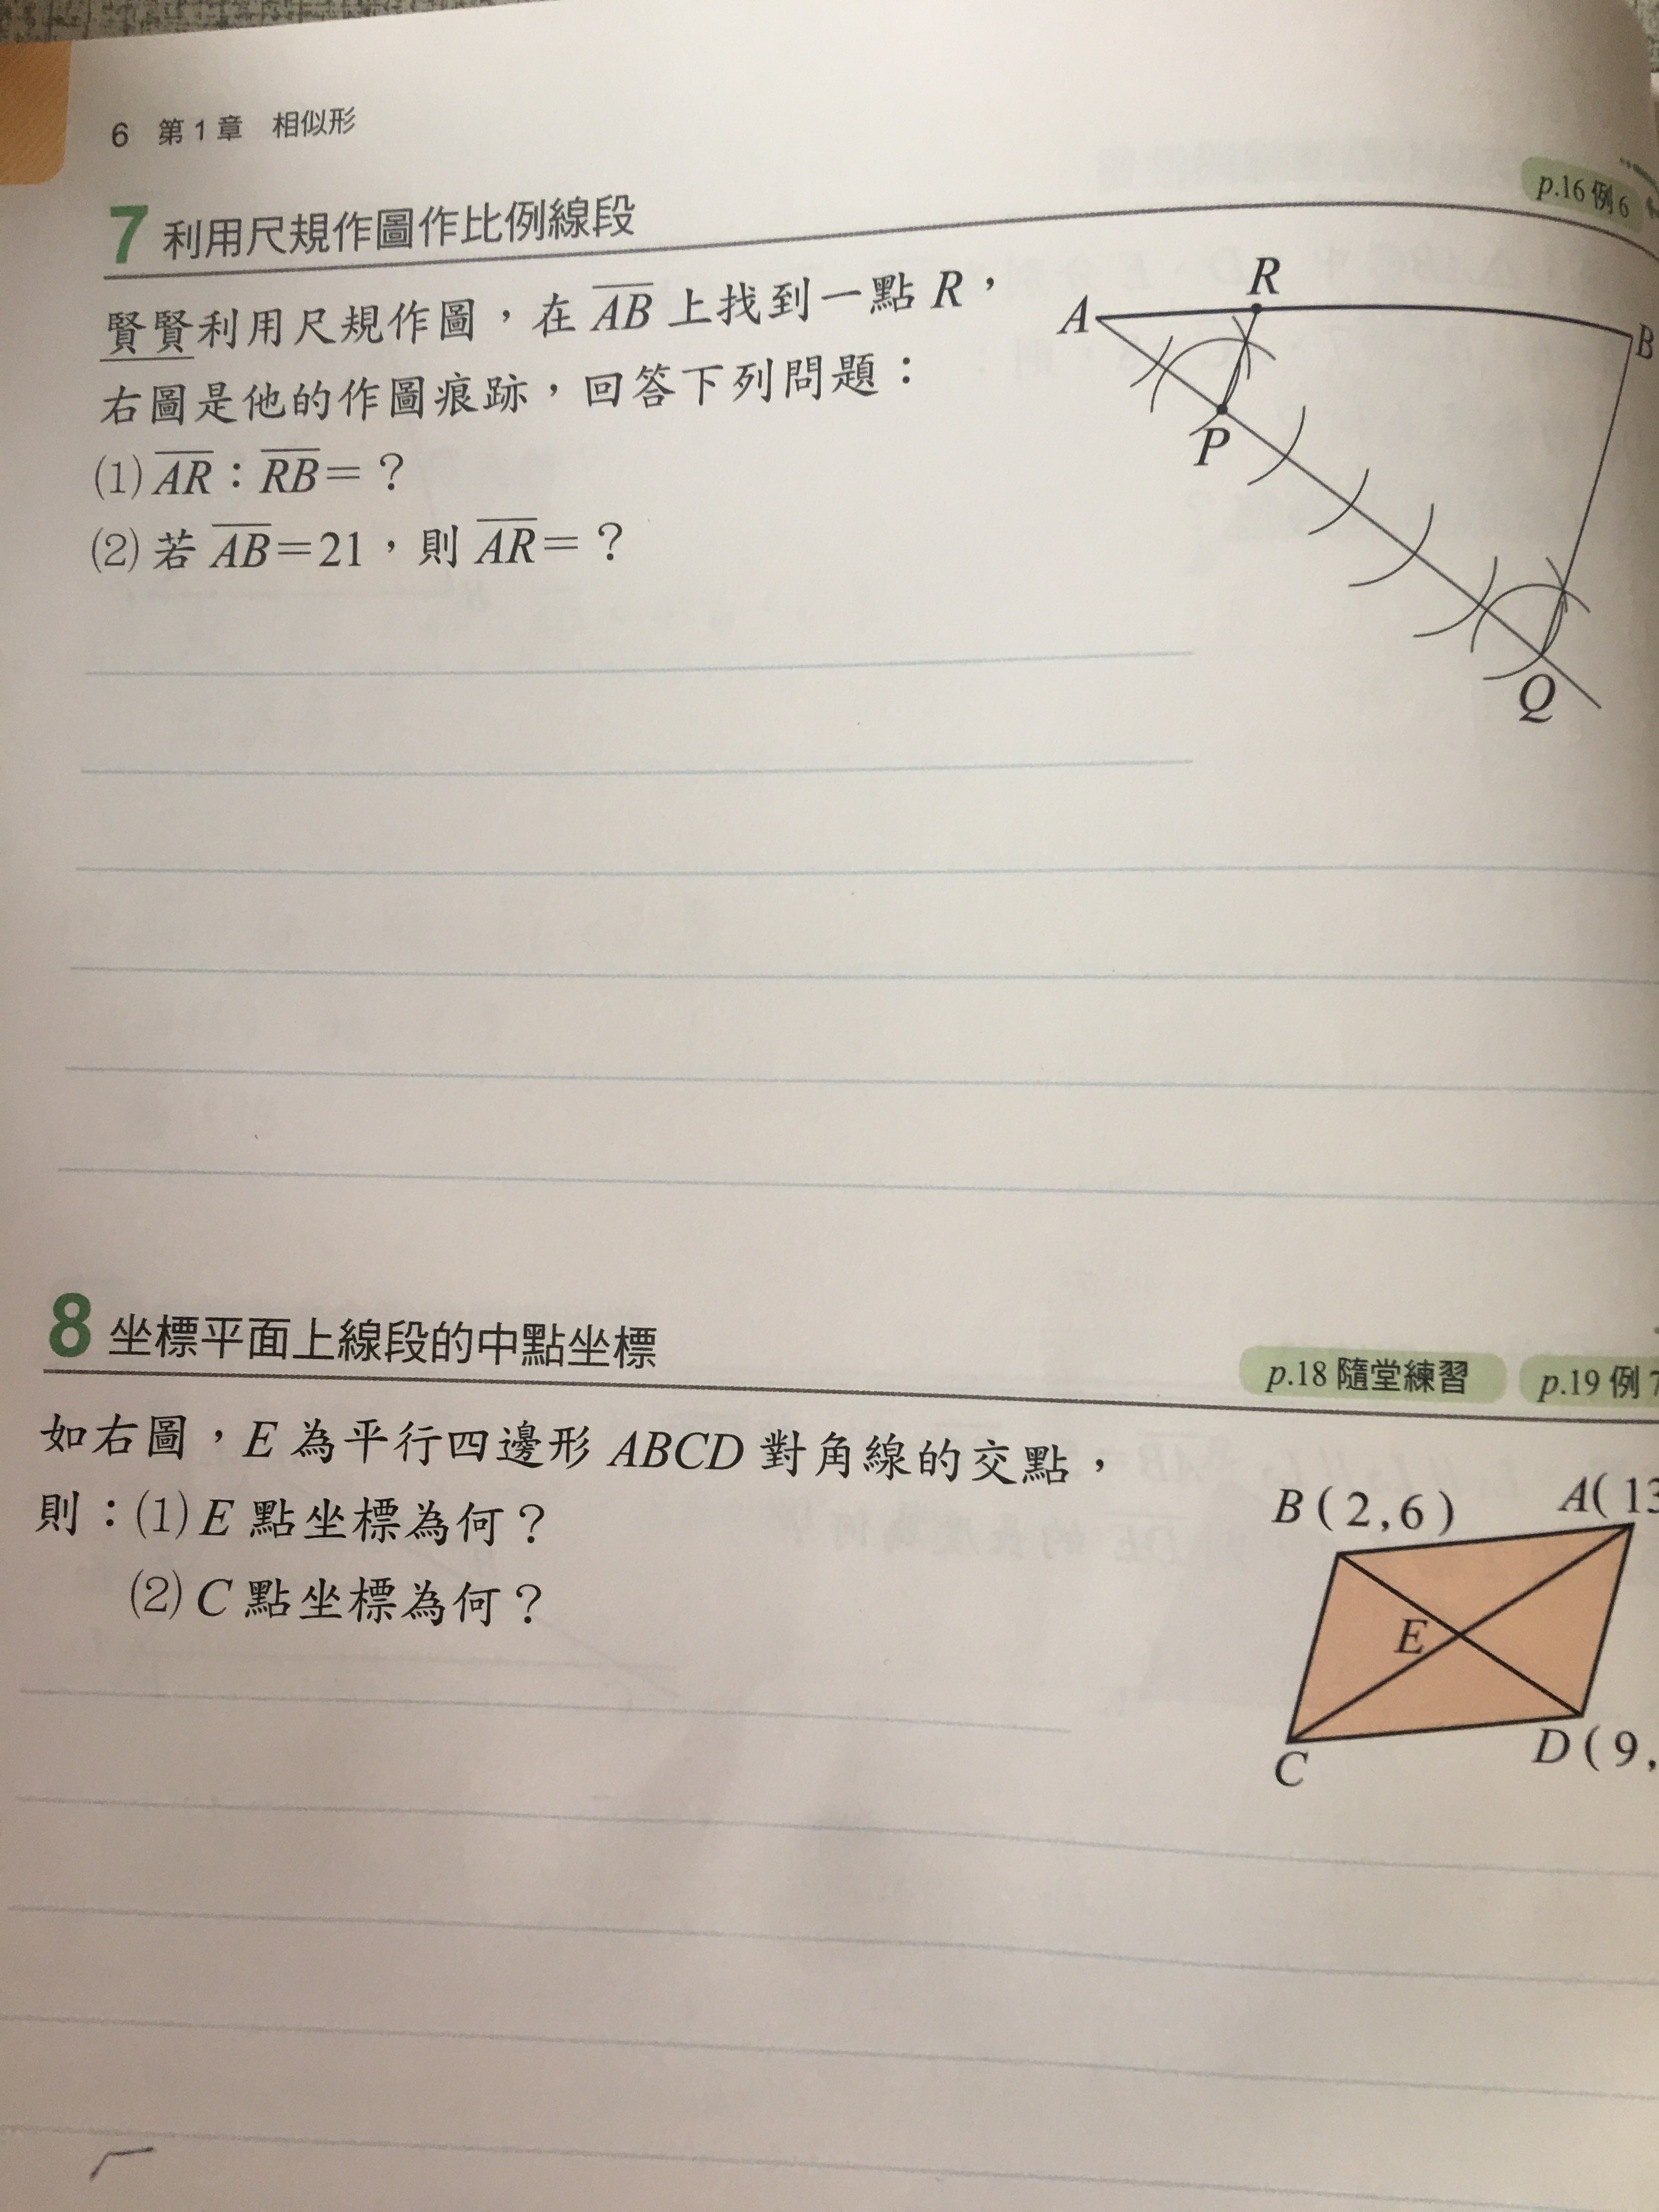 6 第1章 相似形
7 利用尺規作圖作比例線段
p.16 例6
賢賢利用尺規作圖，在 AB 上找到一點 R，
右圖是他的作圖痕跡，回答下列問題：
(1) AR：RB＝？
(2) 若 AB＝21，則 AR＝？
A
R
B
P
Q
8 坐標平面上線段的中點坐標
p.18 隨堂練習
p.19 例7
如右圖，E 為平行四邊形 ABCD 對角線的交點，
則：(1) E 點坐標為何？
(2) C 點坐標為何？
B(2,6)
A(13
E
C
D(9,